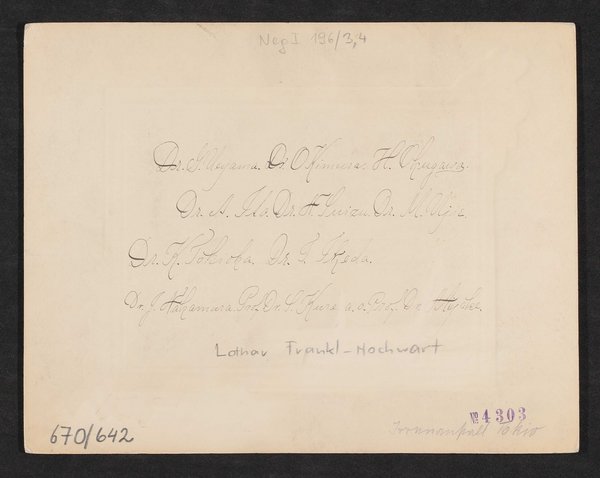 Neg I 196/3,4
Dr. G. Ueyama. Dr. O. Kimura. H.
Dr. A. Ito. Dr. H. Suizu. Dr. M. Ujie.
Dr. K. Dr. T. Ikeda.
Dr. J. Nakamura. Prof. Dr. S. Kure. a. o. Prof. Dr. Miyake.
Lothar Frankl-Hochwart
№ 4303
670/642
Irrenanstalt Tokio